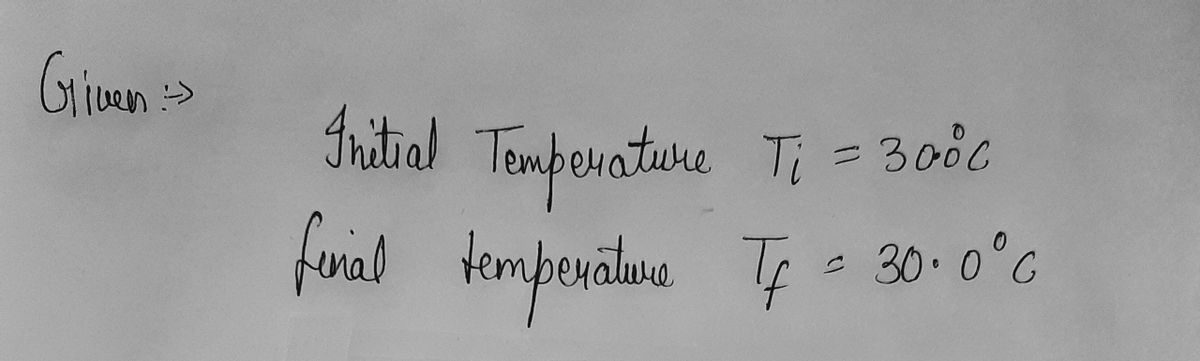 Given :->
Initial Temperature Ti = 30.0°C
final temperature Tf = 30.0°C